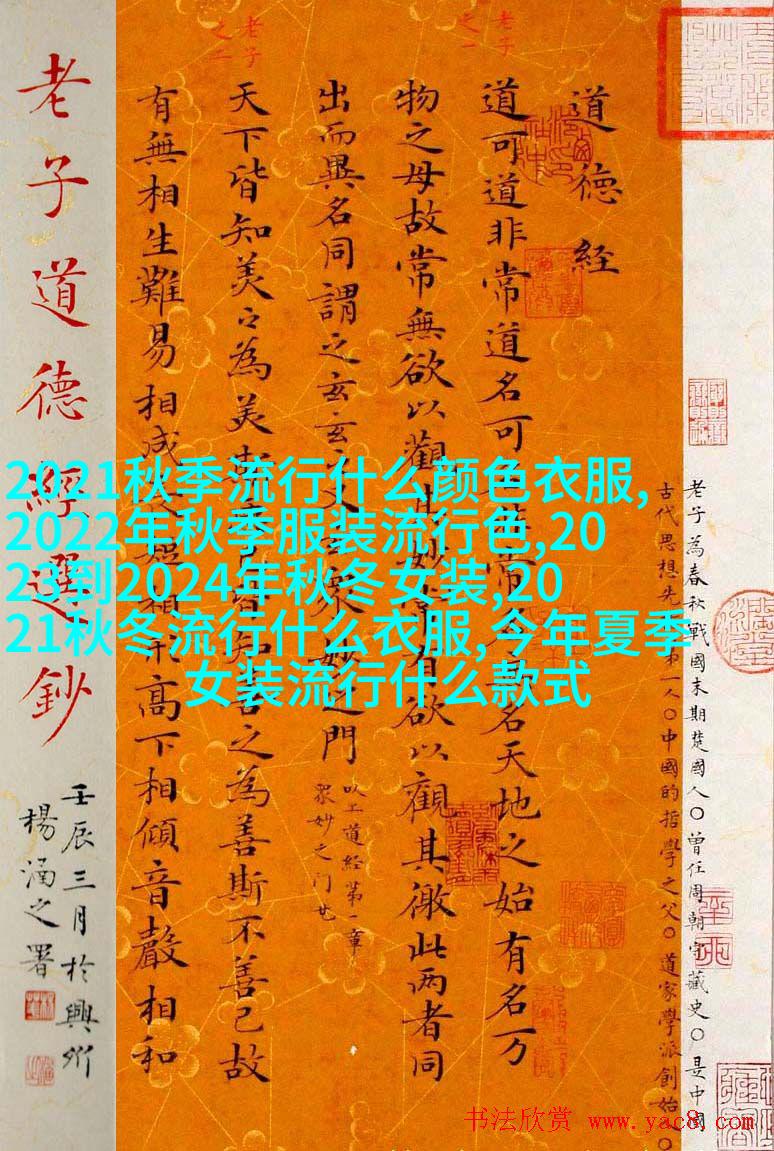 老子為春秋戰國末期楚國人〇曾任周朝守藏史〇是中國
古代思想先第一人〇中國的哲學之父〇道家學派創始人〇
道德經
老子之一
道可道非常道名可非常名天地之始有名万
物之母故常無欲以觀其妙常有欲以觀其徼此两者同
出而異名同謂之玄玄之又玄眾妙之門
以上道經第一章
眾妙之门也
老子之二
天下皆知美之為美皆知善之為善斯不善已故
有無相生難易相成短相形高下相傾音聲相和
老子道德經選鈔
壬辰三月於興州
楊涵之署
2021秋季流行什么颜色衣服,
2022年秋季服装流行色,20
23到2024年秋冬女装,20
21秋冬流行什么衣服,今年夏季
女装流行什么款式
书法欣赏 www.yac8.com